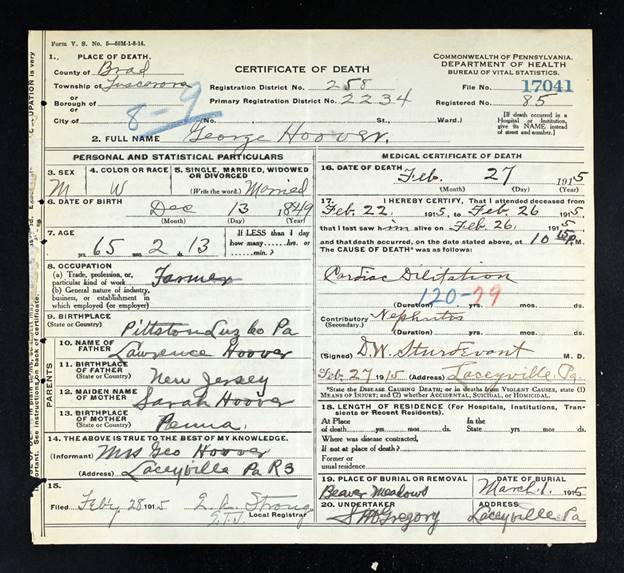 Form V. S. No. 5—50M-1-8-14.
1. PLACE OF DEATH.
County of Brad
Township of Tuscarora
or
Borough of
or
City of
8-9
CERTIFICATE OF DEATH
Registration District No. 258
Primary Registration District No. 2234
No. St., Ward.)
COMMONWEALTH OF PENNSYLVANIA.
DEPARTMENT OF HEALTH
BUREAU OF VITAL STATISTICS.
File No. 17041
Registered No. 85
[If death occurred in a Hospital or Institution, give its NAME instead of street and number.]
2. FULL NAME George Hoover.
PERSONAL AND STATISTICAL PARTICULARS
3. SEX M
4. COLOR OR RACE W
5. SINGLE, MARRIED, WIDOWED OR DIVORCED
(Write the word.) Married
6. DATE OF BIRTH
Dec 13 1849
(Month) (Day) (Year)
7. AGE
65 yrs. 2 mos. 13 ds.
If LESS than 1 day
how many hrs. or
min.?
8. OCCUPATION
(a) Trade, profession, or particular kind of work Farmer
(b) General nature of industry, business, or establishment in which employed (or employer)
9. BIRTHPLACE
(State or Country) Pittston Luz Co Pa
PARENTS
10. NAME OF FATHER Lawrence Hoover
11. BIRTHPLACE OF FATHER
(State or Country) New Jersey
12. MAIDEN NAME OF MOTHER Sarah Hoover
13. BIRTHPLACE OF MOTHER
(State or Country) Penna.
14. THE ABOVE IS TRUE TO THE BEST OF MY KNOWLEDGE.
(Informant) Mrs Geo Hoover
(Address) Laceyville Pa R3
15.
Filed Feby 28 1915
Strong
Local Registrar
MEDICAL CERTIFICATE OF DEATH
16. DATE OF DEATH Feb. 27 1915
(Month) (Day) (Year)
17. I HEREBY CERTIFY, That I attended deceased from
Feb. 22, 1915, to Feb 26 1915
that I last saw him alive on Feb 26, 1915
and that death occurred, on the date stated above, at 10 P.M.
The CAUSE OF DEATH* was as follows:
Cardiac Dilatation
120-79
(Duration) yrs. mos. ds.
Contributory Nephritis
(Secondary.)
(Duration) yrs. mos. ds.
(Signed) D.W. Sturdevant M. D.
Feb. 27 1915 (Address) Laceyville Pa.
*State the DISEASE CAUSING DEATH; or in deaths from VIOLENT CAUSES, state (1) MEANS OF INJURY; and (2) whether ACCIDENTAL, SUICIDAL, or HOMICIDAL.
18. LENGTH OF RESIDENCE (For Hospitals, Institutions, Transients or Recent Residents).
At Place of death yrs. mos. ds. In the State yrs. mos. ds.
Where was disease contracted,
If not at place of death?
Former or
usual residence
19. PLACE OF BURIAL OR REMOVAL
Beaver Meadows
DATE OF BURIAL
March 1. 1915
20. UNDERTAKER
Gregory
ADDRESS
Laceyville Pa